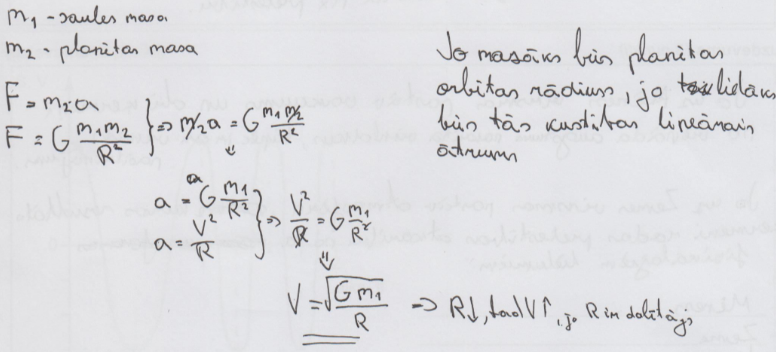 m₁ - saules masa
m₂ - planētas masa
F = m₂a
F = G m₁m₂/R² } ⇒ m₂a = G m₁m₂/R²
⇓
a = G m₁/R²
a = V²/R } ⇒ V²/R = G m₁/R²
⇓
V = √(G m₁/R) ⇒ R↓, tad V↑, jo R ir dalītājs
Jo mazāks būs planētas
orbītas rādiuss, jo lielāks
būs tās kustības lineārais
ātrums